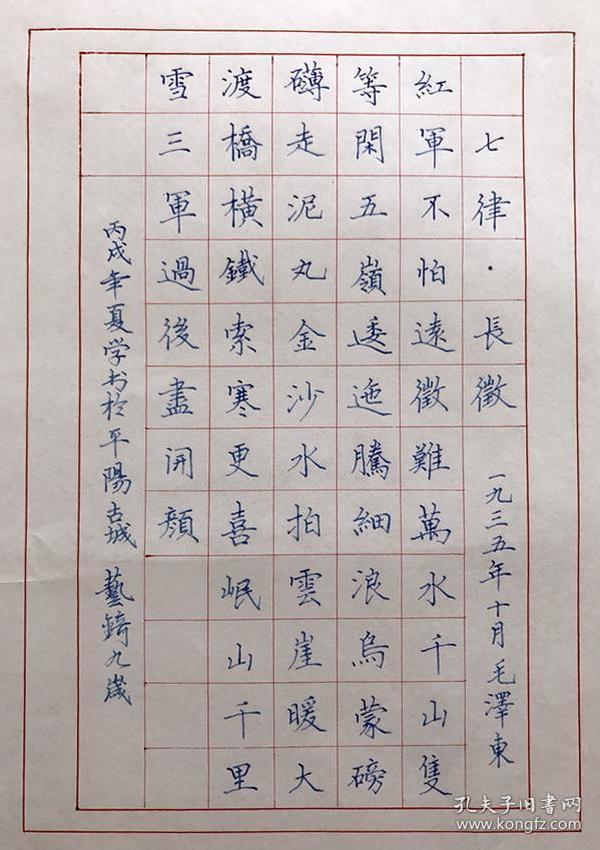 七律·長徵 一九三五年十月毛澤東
紅軍不怕遠徵難萬水千山隻
等閑五嶺逶迤騰細浪烏蒙磅
礴走泥丸金沙水拍雲崖暖大
渡橋橫鐵索寒更喜岷山千里
雪三軍過後盡開顏
丙戌年夏学书於平陽古城 藝錡九歲
孔夫子旧书网
www.kongfz.com